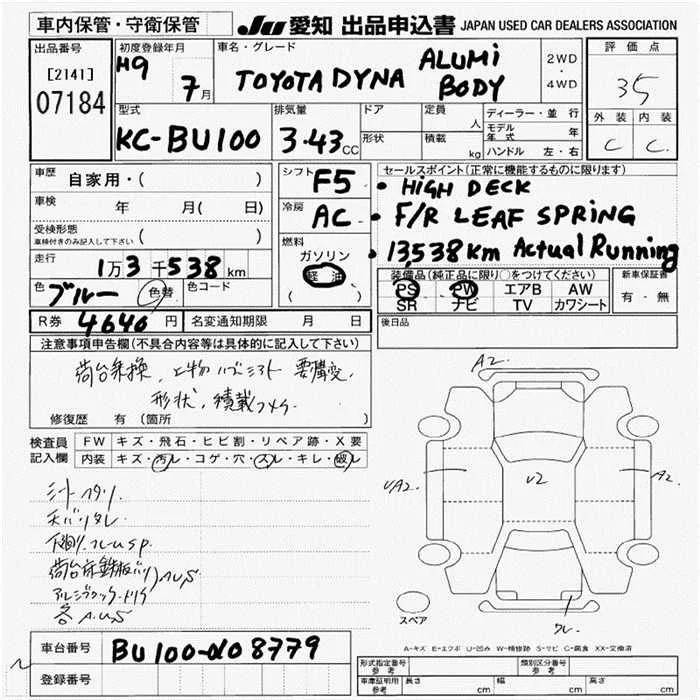 車内保管・守衛保管
JU 愛知 出品申込書 JAPAN USED CAR DEALERS ASSOCIATION
出品番号
[2141]
07184
初度登録年月
H9
7月
車名・グレード
TOYOTA DYNA ALUMi BODY
2WD
・
4WD
評価点
35
外装 内装
C C
型式
KC-BU100
排気量
3.43 CC
ドア
形状
定員
人
積載
kg
ディーラー・並行
モデル年式 年
ハンドル 左・右
車歴
自家用・( )
車検
年 月( 日)
受検形態
車検付きのみ記入して下さい ( )
走行
1万3千538 km
色 ブルー 色替
色コード
R券 4640 円
名変通知期限 月 日
シフト F5
冷房 AC
燃料
ガソリン
軽油
( )
セールスポイント(正常に機能するものに限ります)
・HIGH DECK
・F/R LEAF SPRING
・13,538km Actual Running
装備品(純正品に限り○をつけてください)
PS PW エアB AW
SR ナビ TV カワシート
新車保証書
有・無
後日品
注意事項申告欄(不具合内容等は具体的に記入して下さい)
荷台乗換、
形状、積載
修復歴 有 (箇所 )
検査員記入欄
FW キズ・飛石・ヒビ割・リペア跡・X要
内装 キズ・汚レ・コゲ・穴・スレ・キレ・破レ
A2
UA2
U2
A2
スペア
A-キズ E-エクボ U-凹み W-補修跡 S-サビ C-腐食 XX-交換済
車台番号 BU100-0008779
登録番号
形式指定番号
参考
類別区分番号
参考
車庫証明用
参考
長さ cm 幅 cm 高さ cm